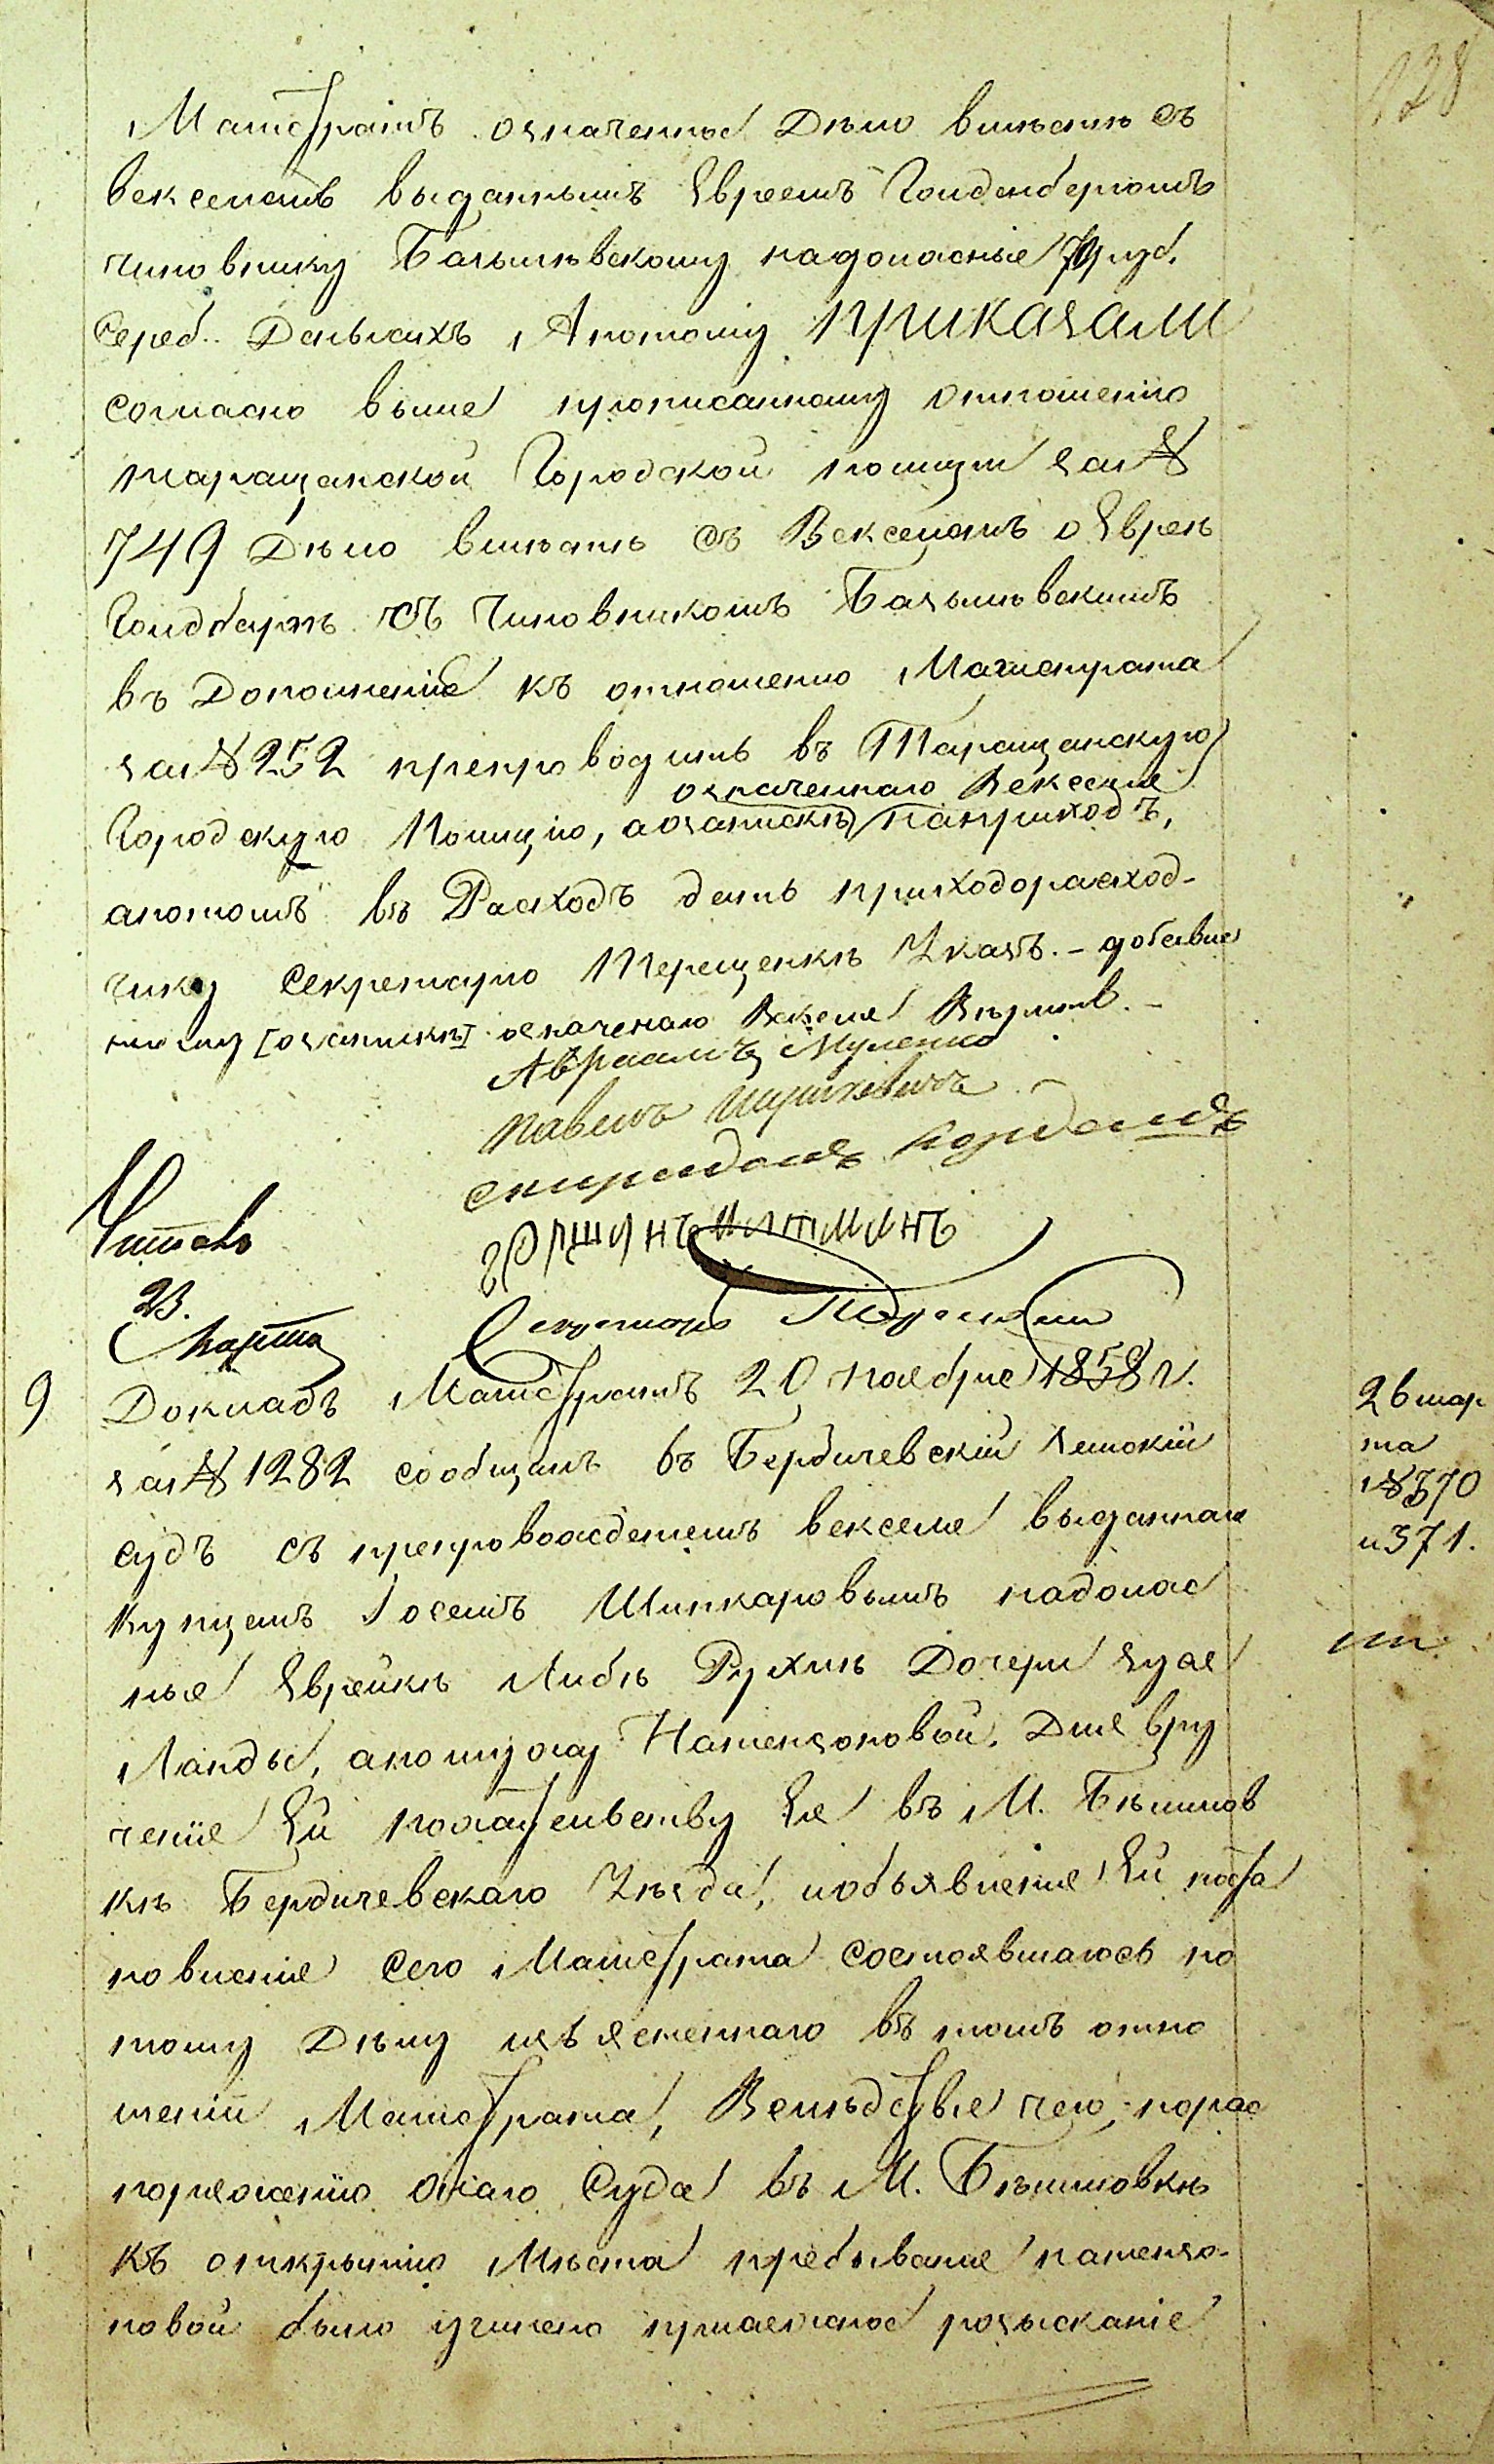 128
Магистратъ означенное Дѣло вмѣстѣ съ
векселемъ выданнымъ Евреемъ Гольденбергомъ
чиновнику Базылѣвскому на должные руб.
сереб. Деньгахъ, А потому приказали
согласно выше прописанному отношенію
таращанской Городской полиціи за №
749 Дѣло вмѣстѣ съ Векселемъ о Евреѣ
съ Чиновникомъ Базылѣвскимъ
въ Дополненіе къ отношенію Магистрата
за № 252 препроводить въ Таращанскую
означеннаго Векселя
Городскую Полицію, а о запискѣ на приходъ,
а потомъ въ Расходъ дать приходорасход-
чику Секретарю Терещенкѣ Указъ. –
[о запискѣ] означенаго Векселя Вѣрить. –
Авраамъ
Павелъ
Спиридонъ
Читалъ
Секретарь Терещенко
23.
Марта
9
Докладъ Магистратъ 20 ноября 1858 г.
за № 1282 сообщилъ въ Бердичевскій Земскій
судъ съ препровожденіемъ векселя выданнаго
купцемъ Іосемъ Шинкаровымъ на должн
ные Еврейкѣ Либѣ Рухлѣ Дочери
Ланды, а по мужу Натензоновой. Для вру
ченія Ей по жительству Ея въ М. Бѣлилов
кѣ Бердичевскаго Уѣзда, и объявленія Ей поста
новленія Сего Магистрата состоявшагось по
тому Дѣлу изъясненнаго въ томъ отно
шеніи Магистрата, Вслѣдствіе чего, по рас
поряженію онаго Суда въ М. Бѣлиловкѣ
къ открытію Мѣста пребыванія натензо-
новой было учинено розысканіе
26 мар
та
№ 370
и 371.